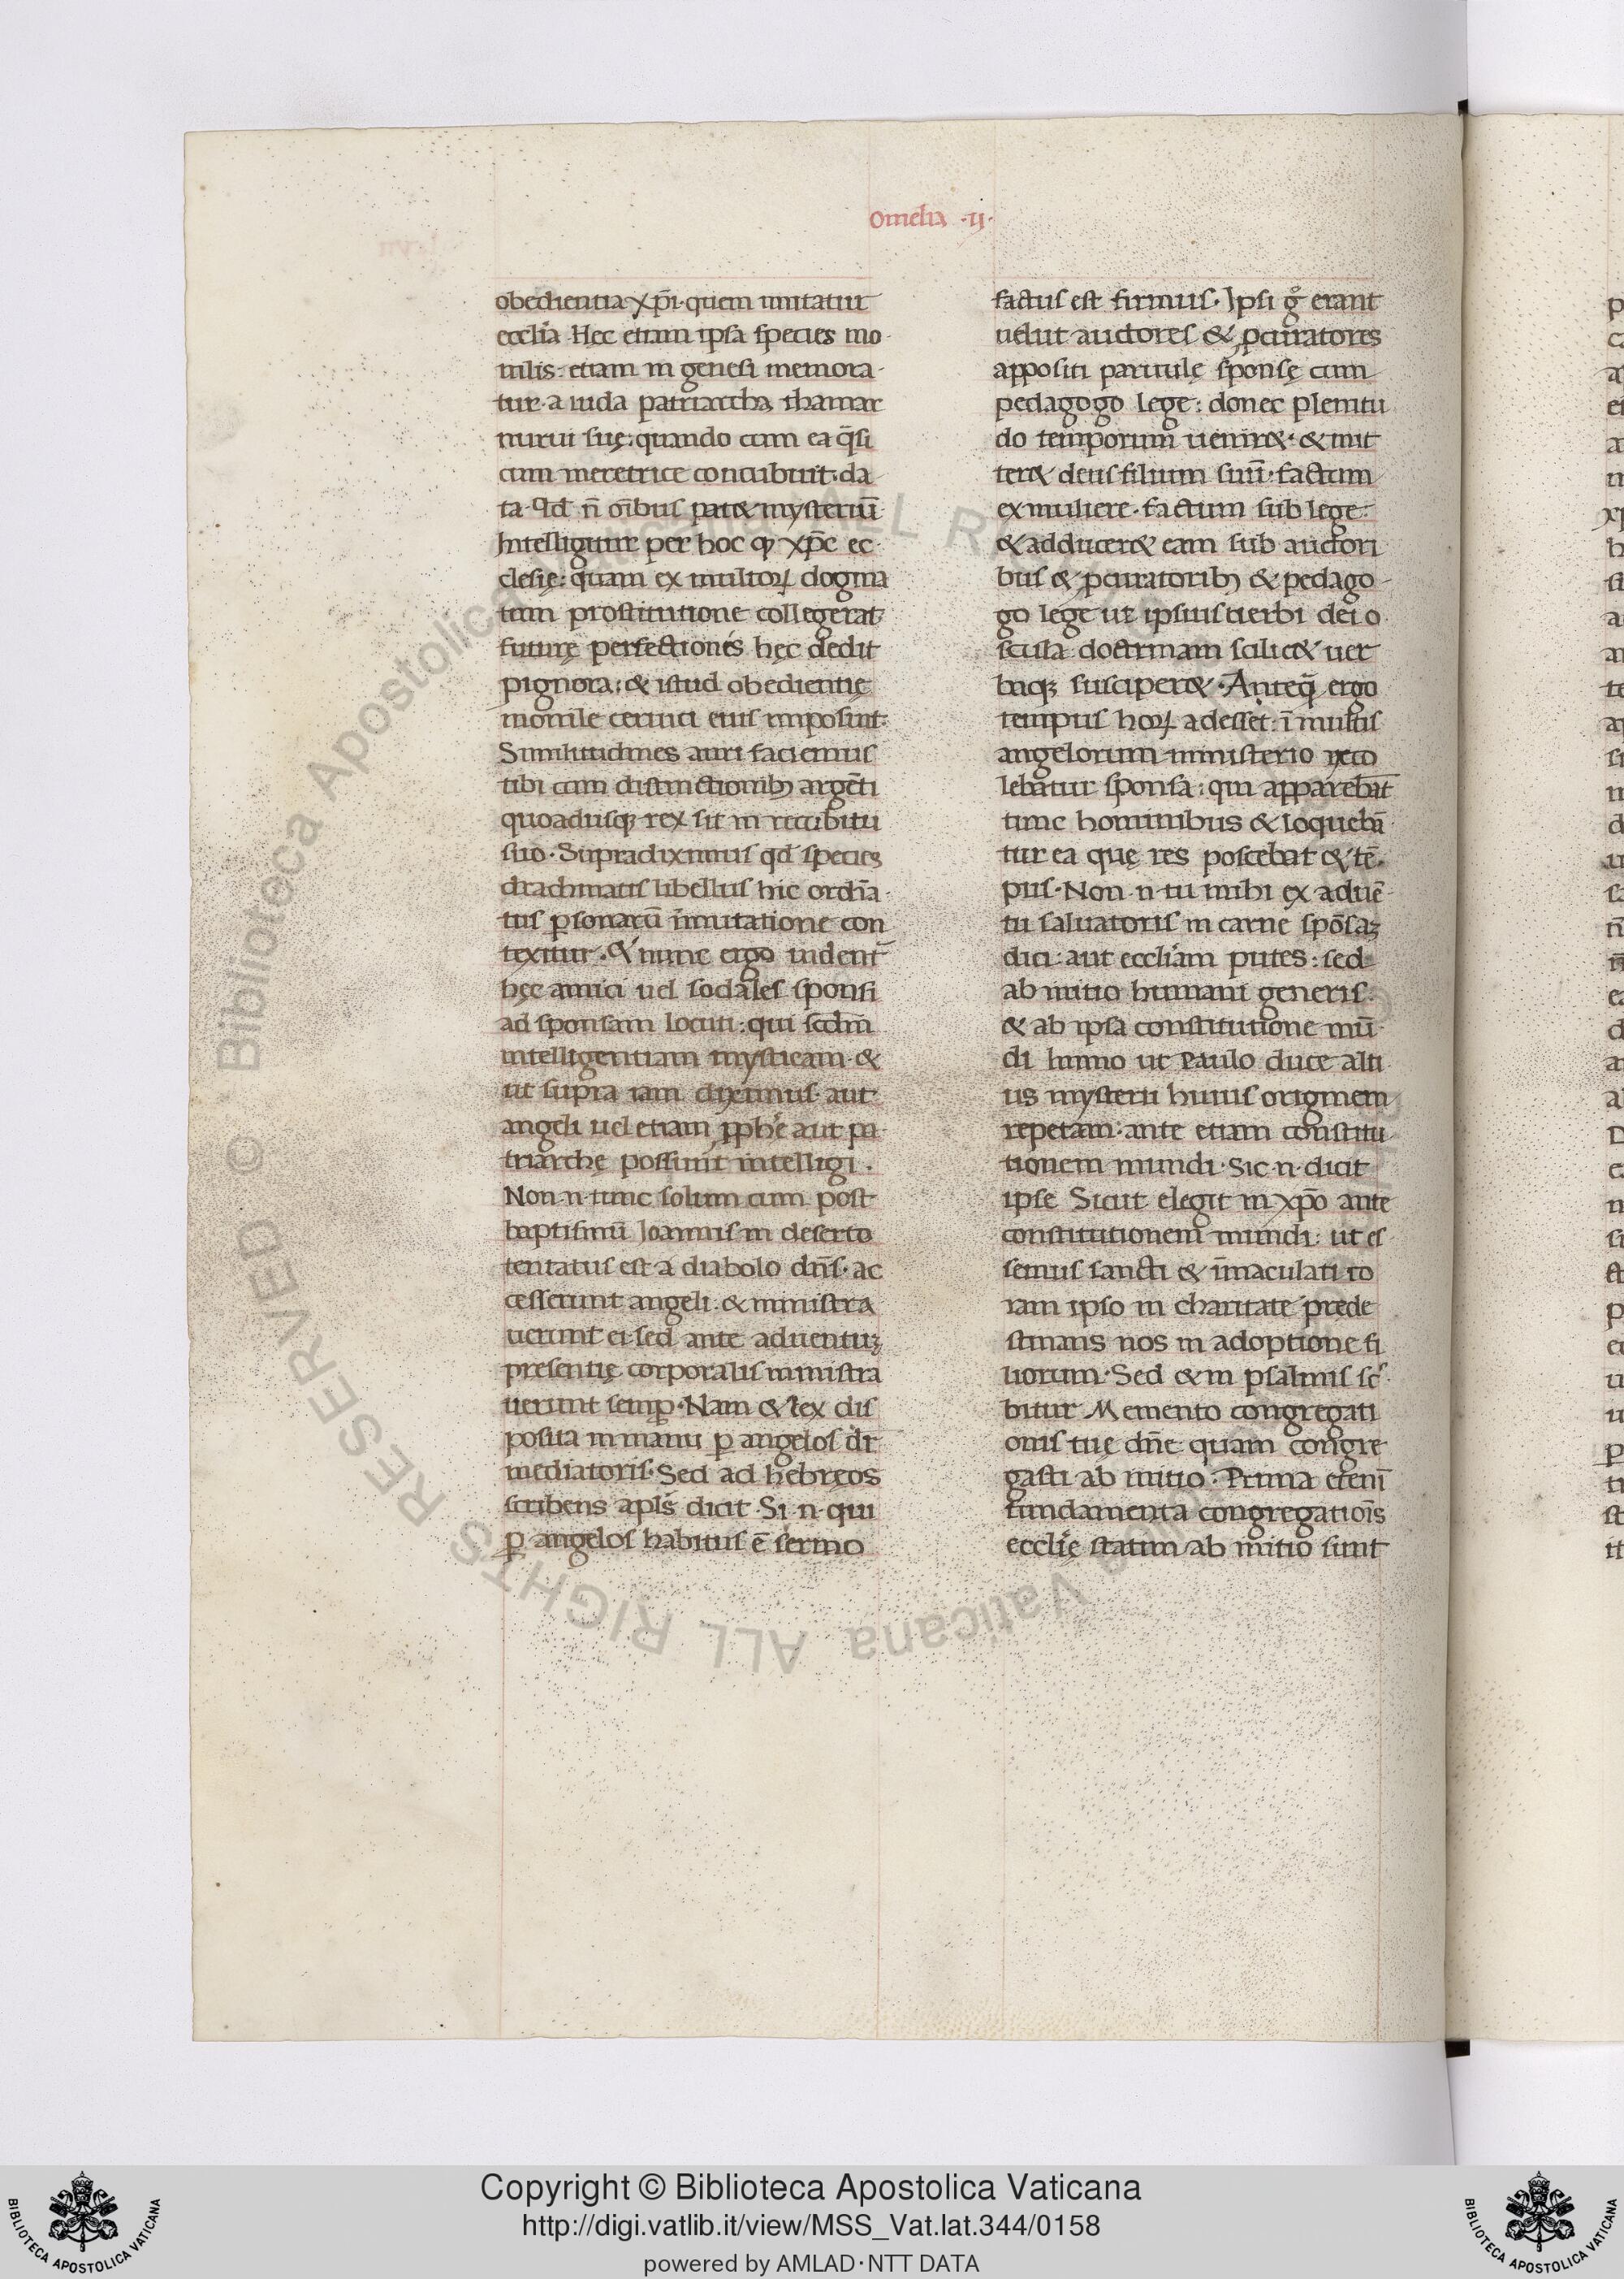 omelia ·ij·
obedientia xp̄i· quem imitatur
ecclīa· Hęc etiam ipsa species mo-
nilis· etiam in genesi memora-
tur· a iuda patriarcha thamar
nurui suę: quando cum ea q̄si
cum meretrice concubuit· da
ta· Qd n̄ oībus patet mysteriū
Intelligitur per hoc qp xp̄c ec
clesię: quam ex multoꝝ dogma
tum prostitutione collegerat
futurę perfectionis hęc dedit
pignora: & istud obedientię
monile ceruici eius imposuit:
Similitudines auri faciemus
tibi cum distinctionibꝫ argēti
quoadusqꝫ rex sit in recubitu
suo· Supradiximus qd species
drachmatis libellus hic ordīa-
tus ꝑsonarū īmutatione con
texitur· & nunc ergo uidenť
hęc amici uel sodales sponsi
ad sponsam locuti: qui scdm
intelligentiam mysticam· &
ut supra iam diximus· aut
angeli uel etiam ꝓphę aut pa
triarchę possunt intelligi·
Non·n·tunc solum cum post
baptismū Joannis in deserto
tentatus est a diabolo dn̄s· ac
cesserunt angeli· & ministra
uerunt ei· sed ante aduentuꝫ
presentię corporalis ministra
uerunt semꝑ· Nam & lex dis
posita in manu ꝑ angelos dr̄
mediatoris· Sed ad hebręos
scribens apls̄ dicit· Si·n·qui
ꝑ angelos habitus ē sermo
factus est firmus· Ipsi g̊ erant
uelut auctores & ꝓcuratores
appositi paruulę sponsę cum
pedagogo lege: donec plenitu
do temporum ueniret· & mit
teret deus filium suū· factum
ex muliere· factum sub lege:
& adduceret eam sub auctori
bus & ꝓcuratoribꝫ & pedago-
go lege ut ipsius uerbi dei o
scula doctrinam scilicet uer
baqꝫ susciperet· Anteq̄ ergo
tempus hoꝝ adesset: ī multis
angelorum ministerio reco
lebatur sponsa: qui apparebāt
tunc hominibus & loquebā
tur ea quę res poscebat & tē-
pus· Non·n·tu mihi ex aduē-
tu saluatoris in carne spōsaꝫ
dici: aut ecclīam putes: sed
ab initio humani generis·
& ab ipsa constitutione mū-
di Immo ut Paulo duce alti
us mysterii huius originem
repetam· ante etiam constitu
tionem mundi· Sic·n·dicit
ipse Sicut elegit in xp̄o ante
constitutionem mundi: ut es
semus sancti & īmaculati co
ram ipso in charitate prede
stinans nos in adoptione fi
liorum· Sed & in psalmis sc̄
bitur Memento congregati
onis tuę dn̄e quam congre
gasti ab initio· Prima etenī
fundamenta congregatiōis
ecclīę statim ab initio sunt
Copyright © Biblioteca Apostolica Vaticana
http://digi.vatlib.it/view/MSS_Vat.lat.344/0158
powered by AMLAD·NTT DATA